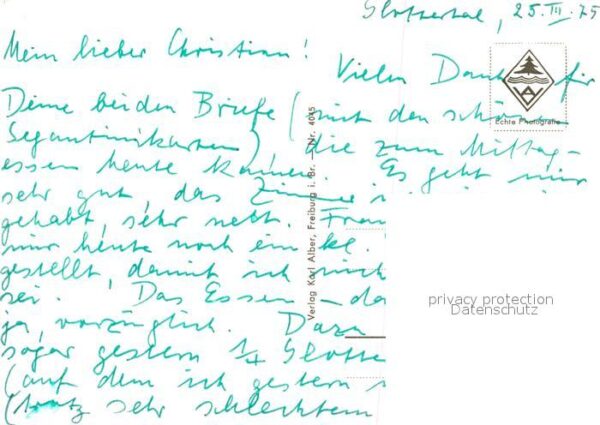 Glottertal, 25.III.75
Mein lieber Christian! Vielen Dank für
Deine beiden Briefe (mit den schönen
Segantinikarten) die zum Mittag-
essen heute kamen. Es geht mir
sehr gut, das Zimmer
gehabt, sehr nett. Frau
mir heute noch ein kl.
gestellt, damit ich nicht
sei. Das Essen - da
ja, vorzüglich. Dazu
sogar gestern 1/4 Glotte
(auf dem ich gestern
(trotz sehr schlechtem
Echte Photografie
Verlag Karl Alber, Freiburg i. Br. — Nr. 4045
privacy protection
Datenschutz